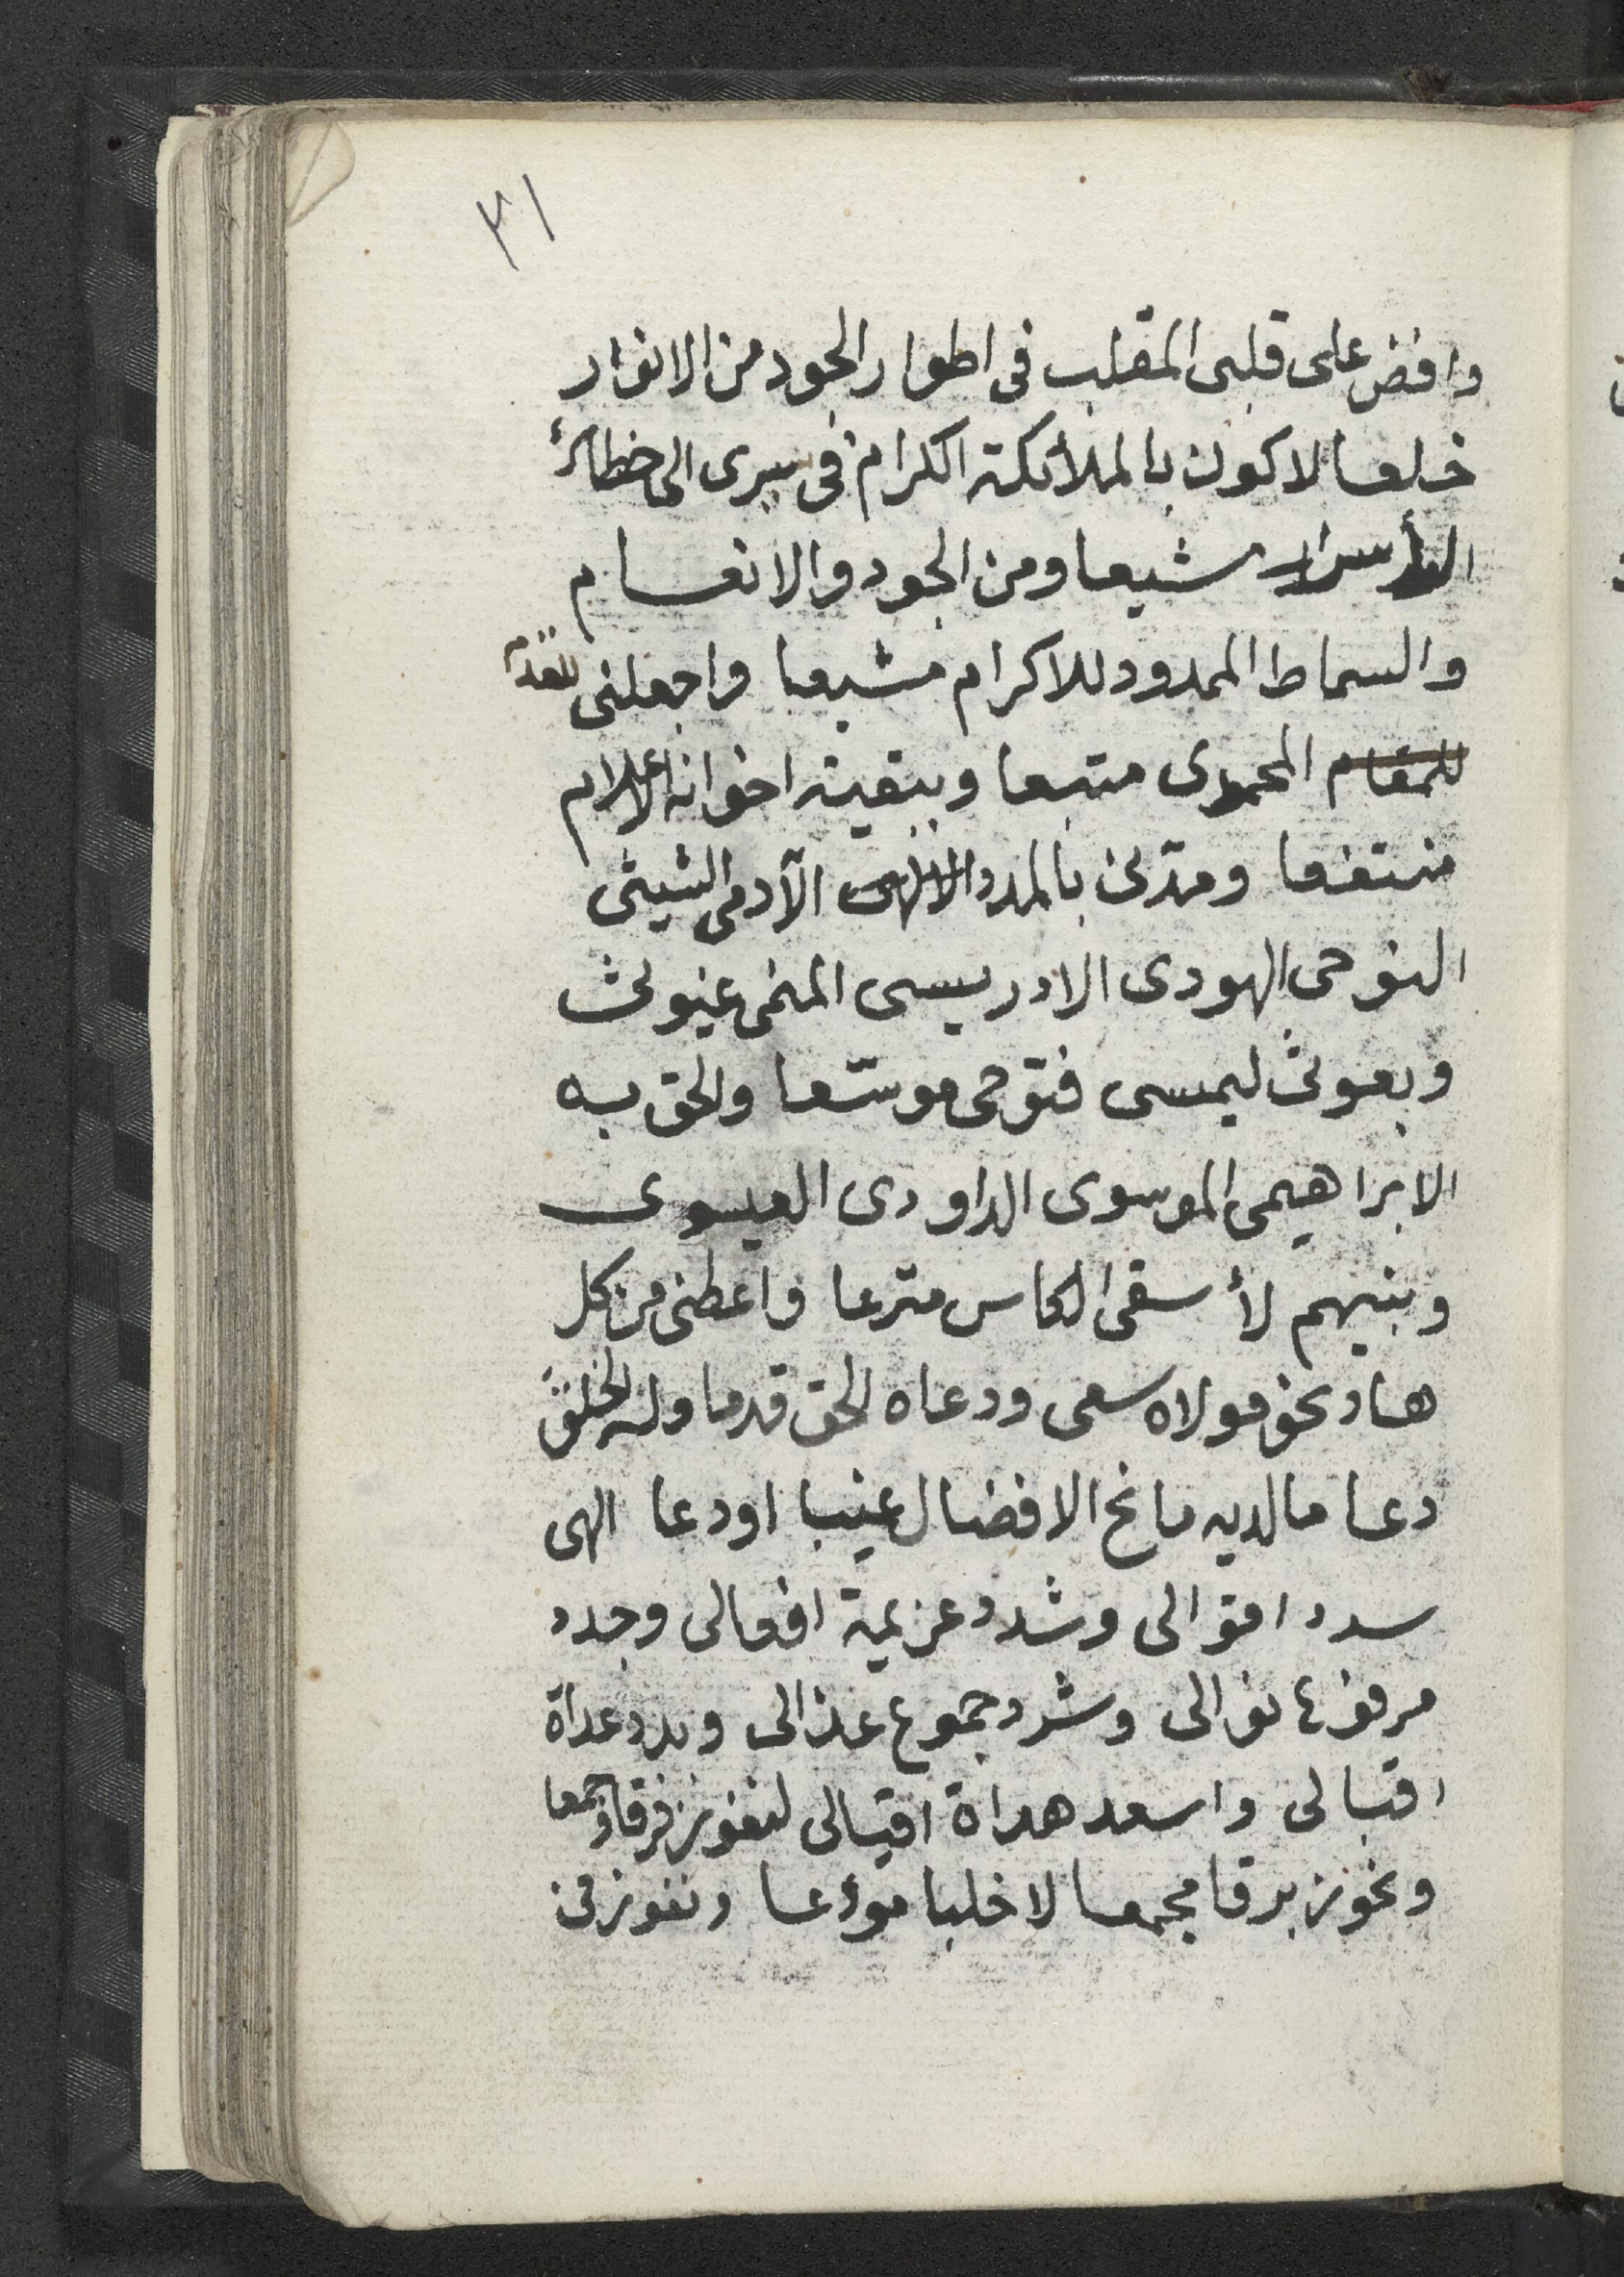 ٣١
وافض على قلبى المقلب فى اطوار الجود من الانوار
خلعا لاكون بالملائكة الكرام فى سيرى الى حظائر
الاسرار شيعا ومن الجود والانعام
والسماط الممدود للاكرام مشبعا واجعلنى للقدم
للمقام المحمدى متبعا وببقية اخوانه الاعلام
منتفعا ومدنى بالمدد الالهى الآدمى الشيثى
النوحى الهودى الادريسى المنحى غيوث
وبعوث ليمسى فتوحى موسّعا والحق به
الابراهيمى الموسوى الداودى العيسوى
وبنيهم لأسقى الكاس مترعا واعطنى من كل
هاد نحو مولاه سعى ودعاه الحق قدما وله الخلق
دعا مالديه مانح الافضال غيبا اودعا الهى
سدد اقوالى وشدد عزيمة افعالى وجدد
مرفوع نوالى وشرد جموع عذالى وبدد عداة
اقبالى واسعد هداة اقيالى لنفوز فرقا وجمعا
ونحوز برقا مجمعا لا خلبا مودعا ونفوز من